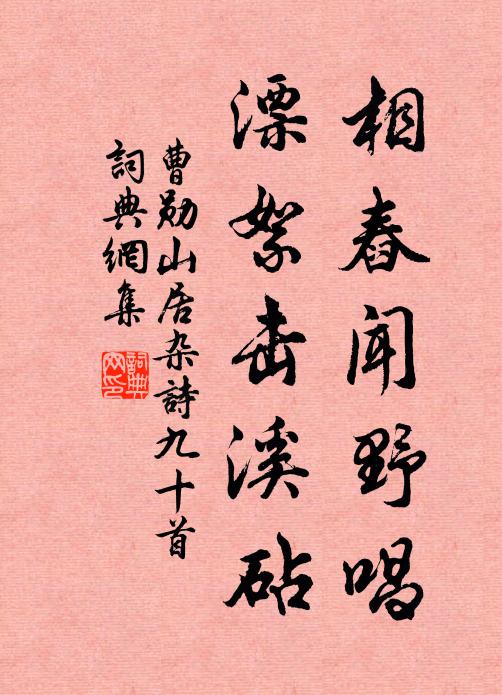 相舂聞野唱
漂絮击溪砧
曹勛山居杂詩九十首
詞典網集
詞典網印